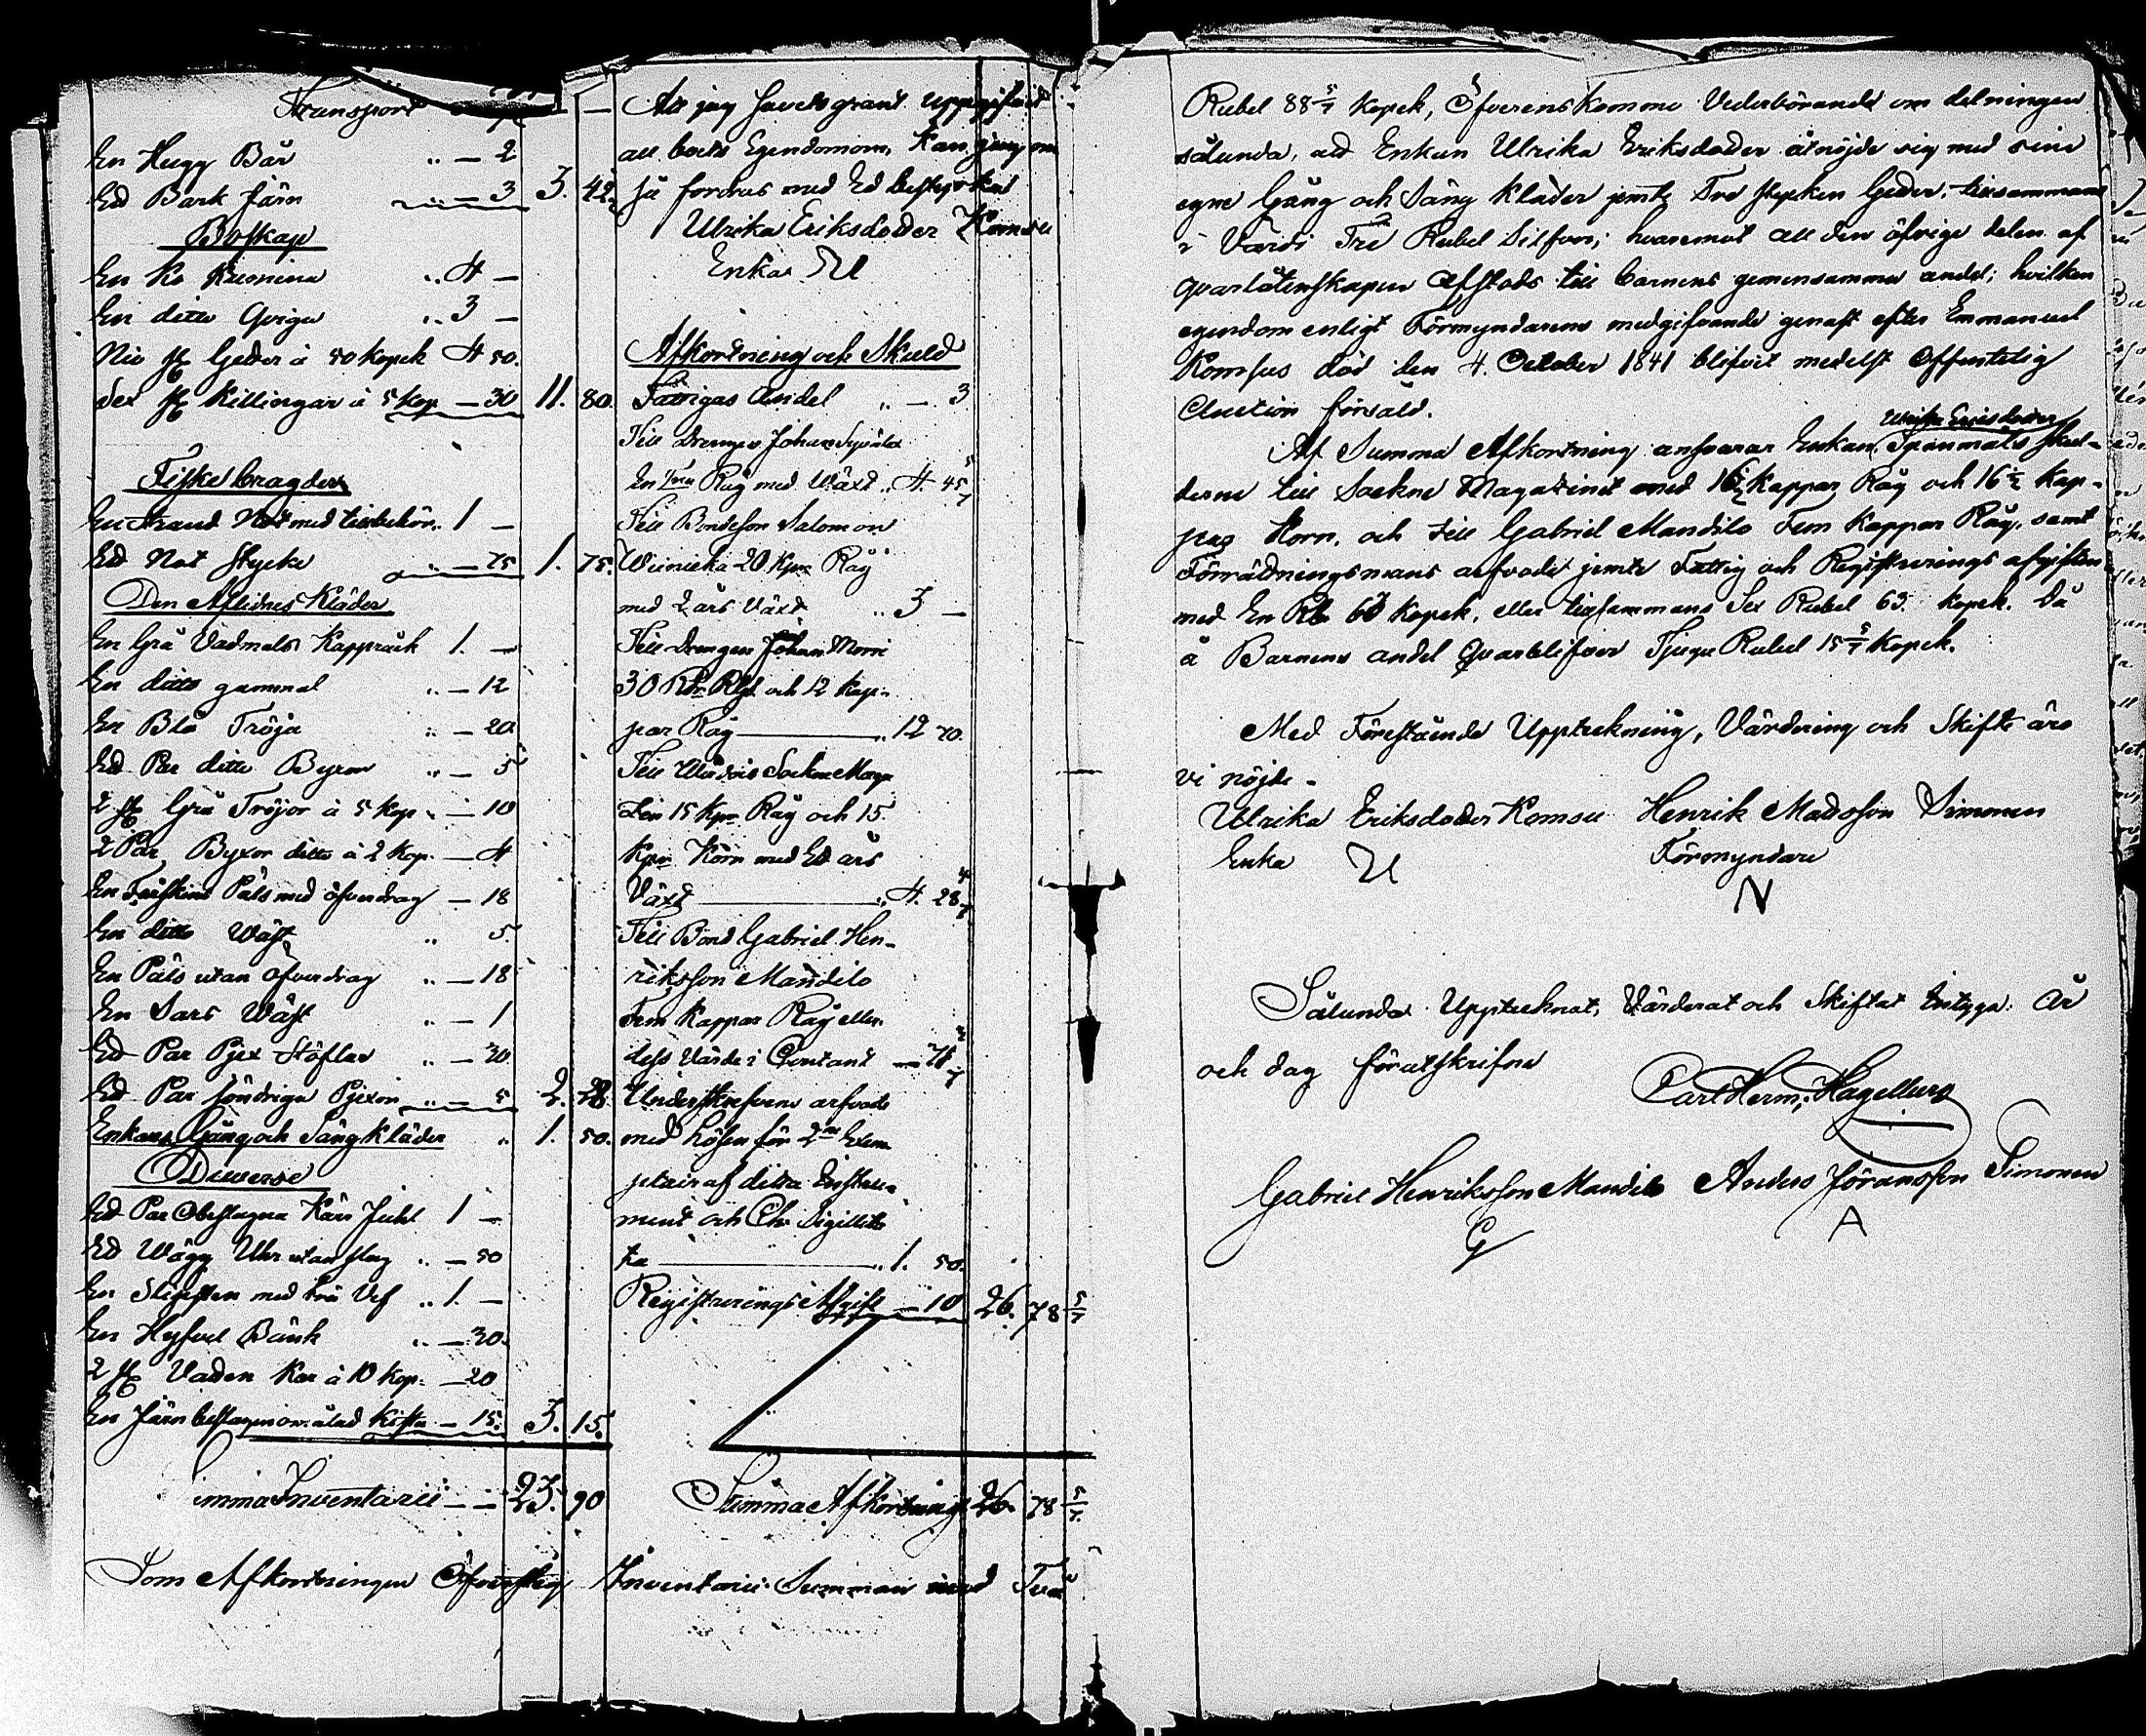 Transport
En Hugg Bår " — 2
Ett Bark Järn " — 3 3. 42
Boskap
En Ko Kuonina " 4 —
En ditto Qviga " 3 —
Nio st Getter à 50 Kopek 4 50.
Sex st Killingar à 5 Kop — 30 11. 80.
Fiskebragder
En Strand Not med tillbehör " 1 —
Ett Not Stycke " — 75 1. 75.
Den Aflidnes Kläder
En Grå Vadmals Kapprock 1. —
En ditto gammal " — 12
En Blå Tröja " — 20
Ett Par ditto Byxor " — 5
2 st Grå Tröjor à 5 Kop " — 10
2 Par Byxor ditto à 2 Kop. — 4
En Fårskins Päls med öfverdrag — 18
En ditto Wäst " 5.
En Päls utan öfverdrag " — 18
En Sars Wäst " — 1
Ett Par Pjex Stöflar " — 30
Ett Par söndriga Pjexor " — 5 2. 28
Enkans Gång och Sängkläder " 1. 50.
Diverse
Ett Par Obeslagna Kärr Hjul 1 —
Ett Wägg Uhr utan slag " — 50
En Slipsten med trä Vef " 1. —
En Hyfvel Bänk " — 30.
2 st Vatten Kar à 10 Kop. — 20
En Järn beslagen omålad Kista — 15. 3. 15.
Summa Inventarii — — 23. 90
Att jag havets grant uppgifvit
all boets Egendomom, Kan jag om
så fordras med Ed bestyrka
Ulrika Eriksdotter Komsu
Enka U
Afkortning och Skuld
Fattigas Andel " — 3
Till Drengen Johan
En Tna Råg med Wäxt " 4 45 5/7
Till Bondeson Salomon
20 Kpr Råg
med 2 års Växt " 3 —
Till Drengen Johan
30 Rbr Rgs och 12 Kap-
par Råg — " 12 70.
Till Sockne Maga
zin 15 Kpr Råg och 15
Kpr Korn med Ett års
Växt — " 4. 28 4/7
Till Bond Gabriel Hen-
riksson Mandilo
Fem Kappar Råg eller
dess Värde i Contant — 71 3/7
Underskrefvens arfvode
med Lösen för 2ne Exem
plair af detta Instru-
ment och Ch. Sigillatta
ta — " 1. 50.
Registrerings Afgift — 10 26. 78 5/7
Summa Afkortning 26. 78 5/7
Som Afkortningen Öfverstig Inventarii Summan med Två
Rubel 88 5/7 Kopek, Öfverenskomme Vederbörande om delningen
sålunda, att Enkan Ulrika Eriksdotter åtnöjde sig med sine
egne Gång och Säng Kläder jemte Tre stycken Getter, tillsammans
i Värdi Tre Rubel Silfver; hvaremot all den öfrige delen af
qvarlåtenskapen Afstods till barnens gemensamma andel; hvilken
egendom enligt Förmyndarens medgifvande genast efter Emmanuel
Komsus död den 4. October 1841 blifvit medelst Offentelig
Auction försåld.
Ulrika Ericsdotter
Af Summa Afkortning ansvarar Enkan Skul-
derne till Sockne Magazinet med 16 1/2 Kappar Råg och 16 1/2 Kap-
par Korn, och till Gabriel Mandilo Fem Kappar Råg, samt
Förrättningsmans arfvode jemte Fattig och Registrerings afgiften
med En Rb 63 Kopek, eller tillsammans Sex Rubel 63 kopek. Då
å Barnens andel Qvarblifver Tjugu Rubel 15 5/7 Kopek.
Med Förestående Uppteckning, Värdering och Skifte äro
vi nöjde -
Ulrika Eriksdotter Komsu Henrik Madsson Simonen
Enka U Förmyndare
N
Sålunda Upptecknat, Värderat och Skiftat Intyga: År
och dag förutskrifne
Carl Herm. Hagellurg
Gabriel Henriksson Mandilo Anders Jöransson Simonen
G A